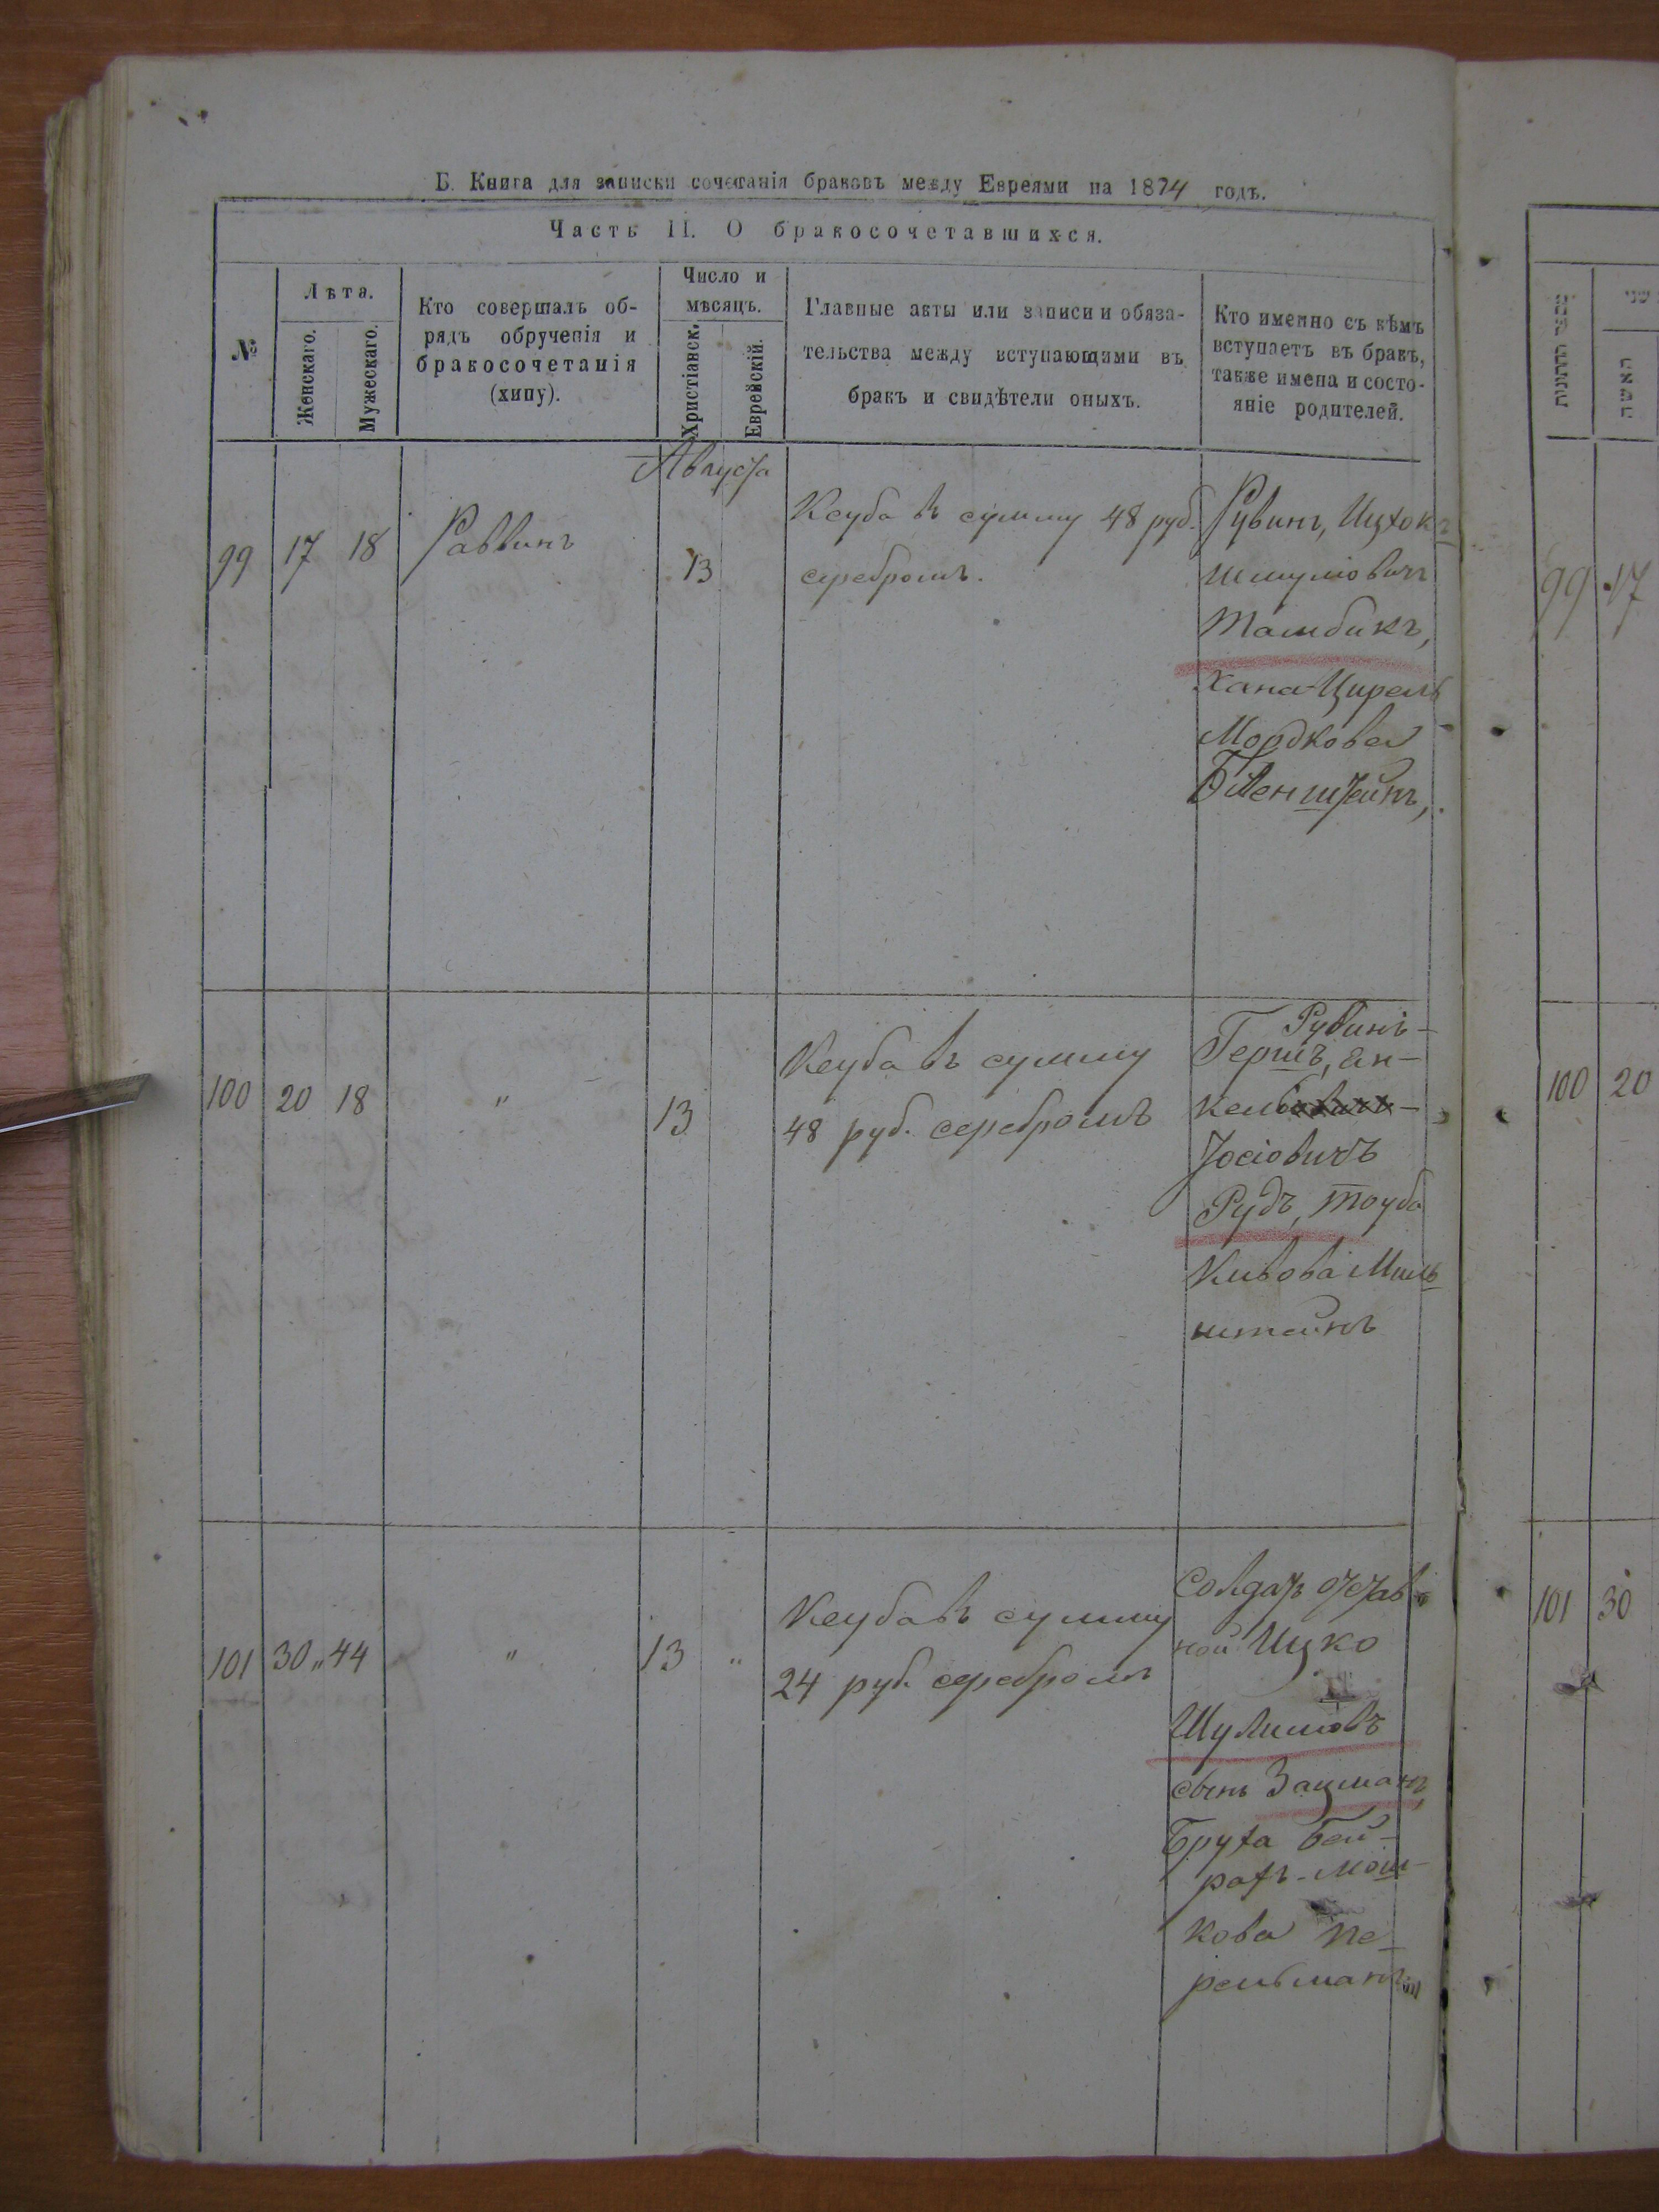 Б. Книга для записки сочетанія браковъ между Евреями на 1874 годъ.
Часть II. О бракосочетавшихся.
№
Лѣта.
Женскаго.
Мужескаго.
Кто совершалъ об-
рядъ обрученія и
бракосочетанія
(хипу).
Число и
мѣсяцъ.
Христіанск.
Еврейскій.
Главные акты или записи и обяза-
тельства между вступающими въ
бракъ и свидѣтели оныхъ.
Кто именно съ кѣмъ
вступаетъ въ бракъ,
также имена и состо-
яніе родителей.
Августа
99 17 18 Раввинъ 13
Ксуба въ сумму 48 руб.
серебромъ.
Рувинъ, Ицхокъ
Шмуліовичъ
Тамбикъ,
Хана-Цирель
Мордкова
Бленштейнъ,
100 20 18 " 13
Ксуба въ сумму
48 руб. серебромъ
Рувинъ-
Гершъ, Ян-
кель
Іосіовичъ
Рудъ, Тоуба
Кивова Миль
штейнъ
101 30 „ 44 " 13 "
Ксуба въ сумму
24 руб. серебромъ
Солдатъ отстав
ной Ицко
Шулимовъ
сынъ Зацманъ,
Бруха Бей-
рахъ-Мош-
кова Пе-
рельманъ
99 17
100 20
101 30